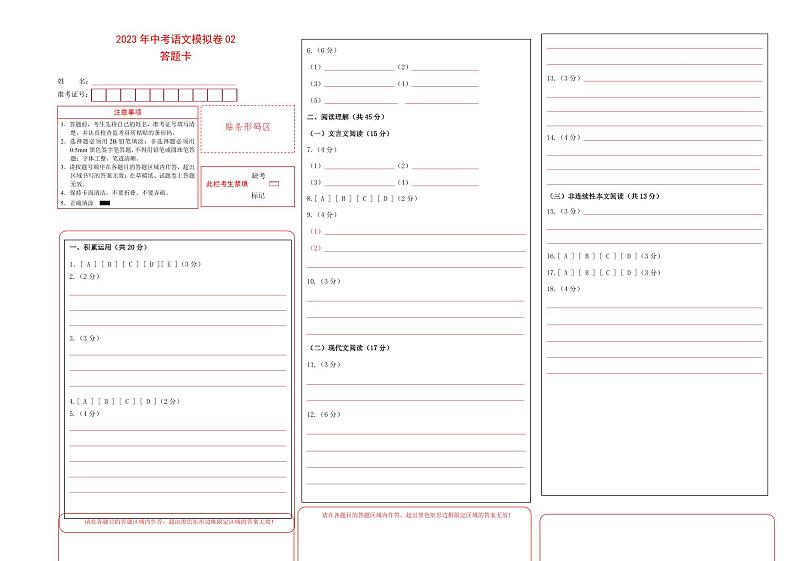 2023 年中考语文模拟卷 02
答题卡
姓 名：
准考证号：
注意事项
1．答题前，考生先将自己的姓名，准考证号填写清
楚，并认真检查监考员所粘贴的条形码。
2．选择题必须用 2B 铅笔填涂；非选择题必须用
0.5mm 黑色签字笔答题，不得用铅笔或圆珠笔答
题；字体工整、笔迹清晰。
3．请按题号顺序在各题目的答题区域内作答，超出
区域书写的答案无效；在草稿纸、试题卷上答题
无效。
4．保持卡面清洁，不要折叠、不要弄破。
5．正确填涂
贴条形码区
此栏考生禁填
缺考
标记
一、积累运用（共 20 分）
1、[ A ] [ B ] [ C ] [ D ][ E ]（3 分）
2.（2 分）
3.（3 分）
4.[ A ] [ B ] [ C ] [ D ]（2 分）
5.（4 分）
请在各题目的答题区域内作答，超出黑色矩形边框限定区域的答案无效！
6.（6 分）
（1）（2）
（3）（4）
（5）
二、阅读理解（共 45 分）
（一）文言文阅读（15 分）
7.（4 分）
（1）（2）
（3）（4）
8.[ A ] [ B ] [ C ] [ D ]（2 分）
9.（4 分）
（1）
（2）
10.（3 分）
（二）现代文阅读（17 分）
11.（3 分）
12.（6 分）
请在各题目的答题区域内作答，超出黑色矩形边框限定区域的答案无效！
13.（3 分）
14.（4 分）
（三）非连续性本文阅读（共 13 分）
15.（3 分）
16.[ A ] [ B ] [ C ] [ D ]（3 分）
17.[ A ] [ B ] [ C ] [ D ]（3 分）
18.（4 分）